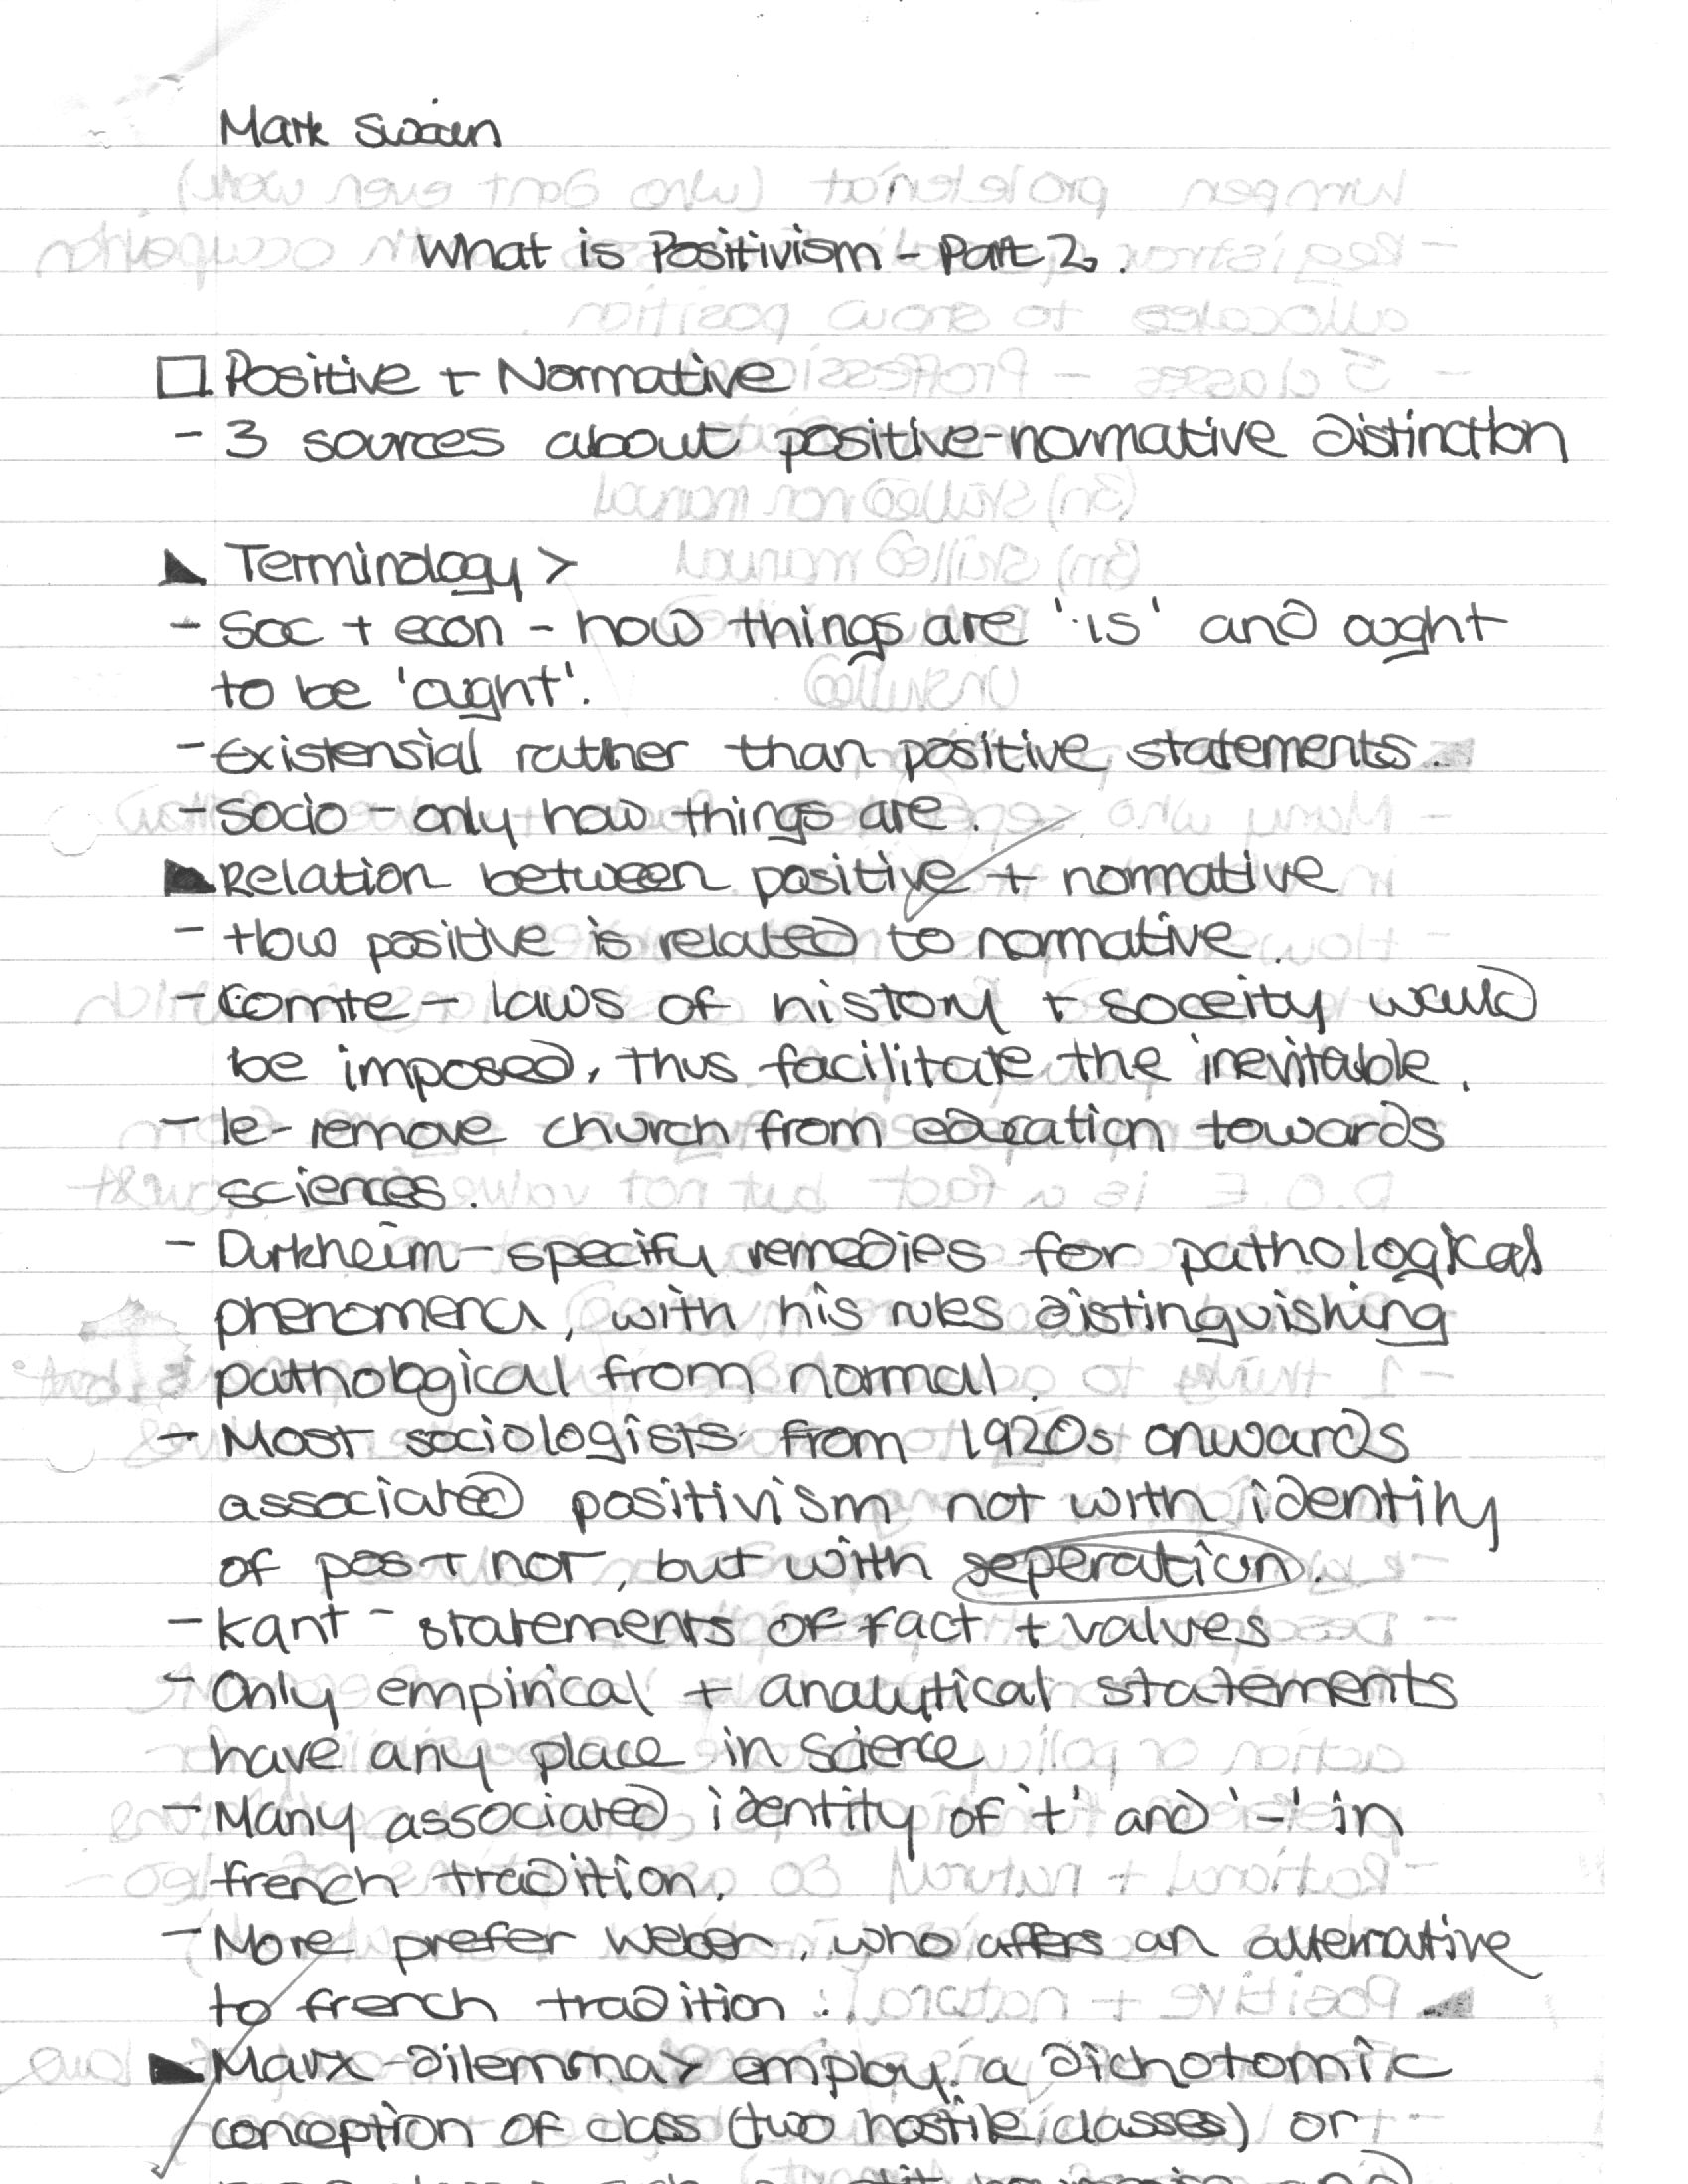 Mark Swain
What is Positivism - Part 2.
Positive + Normative
- 3 sources about positive-normative distinction
Terminology >
- Soc + econ - how things are 'is' and aught
to be 'aught'.
- Existensial rather than positive statements.
- Socio - only how things are.
Relation between positive + normative
- How positive is related to normative.
- Comte - laws of history + soceity would
be imposed, thus facilitate the inevitable.
- Ie - remove church from education towards
sciences.
- Durkheim - specify remedies for pathological
phenomena, with his rules distinguishing
pathological from normal.
- Most sociologists from 1920s onwards
associated positivism not with identity
of pos + nor, but with seperation.
- Kant - statements of fact + values
- Only empirical + analytical statements
have any place in science
- Many associated identity of '+' and '-' in
french tradition.
- More prefer Weber, who offers an alternative
to french tradition.
Marx - dilemma > employ a dichotomic
conception of class (two hostile classes) or